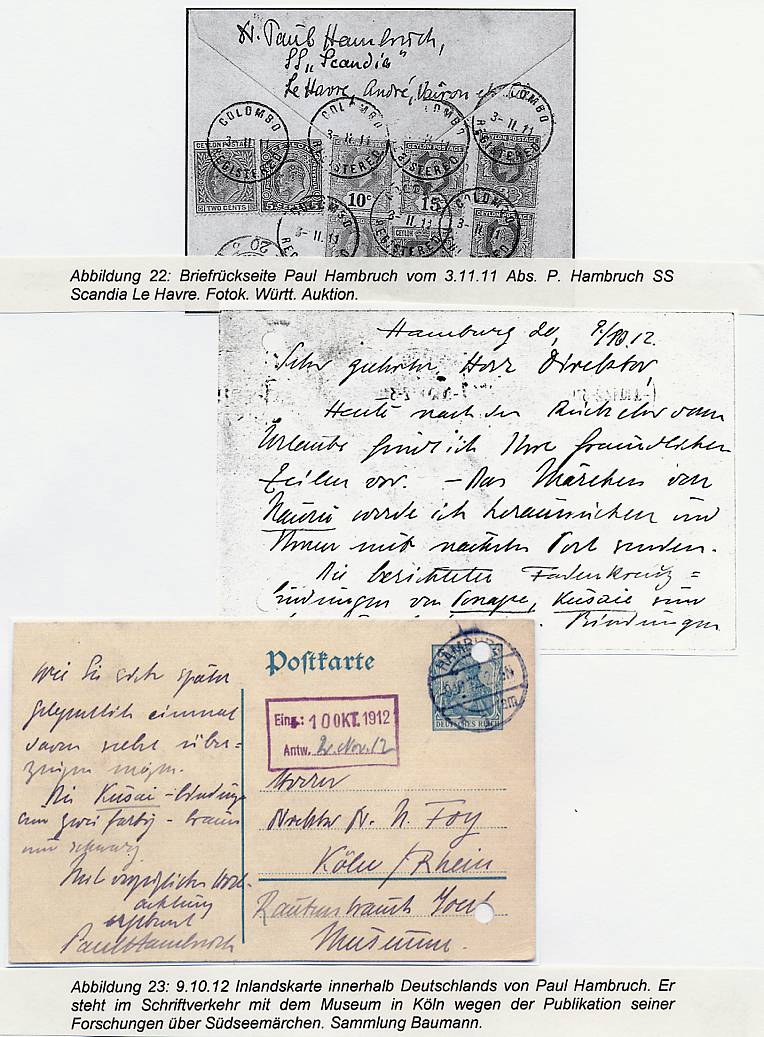 Dr. Paul Hambruch,
SS „Scandia"
Le Havre, André, Vairon et
COLOMBO
3-11.11
REGISTERED
COLOMBO
3-11.11
REGISTERED
COLOMBO
REGISTERED
COLOMBO
3-11.11
REGISTERED
CEYLON POSTAGE
TWO CENTS
10c
15
COLOMBO
3-11.11
REGISTERED
3-11.11
REGISTERED
COLOMBO
3-11.11
Abbildung 22: Briefrückseite Paul Hambruch vom 3.11.11 Abs. P. Hambruch SS
Scandia Le Havre. Fotok. Württ. Auktion.
Hamburg, 9/10.12.
Sehr geehrter Herr Direktor,
Heute nach der Rückkehr vom
Urlaube fand ich Ihre freundlichen
Zeilen vor. – Das Märchen von
Nauru werde ich heraussuchen und
Ihnen mit nächster Post senden.
Die berichteten Fadenkreuz=
bindungen von Ponape, Kusaie sind
Bindungen
Wie Sie sich später
gelegentlich einmal
davon selbst über=
zeugen mögen.
Die Kusaie-bindungen
zwei farbig – braun
und schwarz
Mit vorzüglicher Hoch-
achtung
ergebenst
Paul Hambruch
Postkarte
HAMBURG
DEUTSCHES REICH
Eing.: 10 OKT. 1912
Antw. 2. Nov. 12
Herrn
Direktor Dr. W. Foy
Köln / Rhein
Rautenstrauch Joest
Museum.
Abbildung 23: 9.10.12 Inlandskarte innerhalb Deutschlands von Paul Hambruch. Er
steht im Schriftverkehr mit dem Museum in Köln wegen der Publikation seiner
Forschungen über Südseemärchen. Sammlung Baumann.